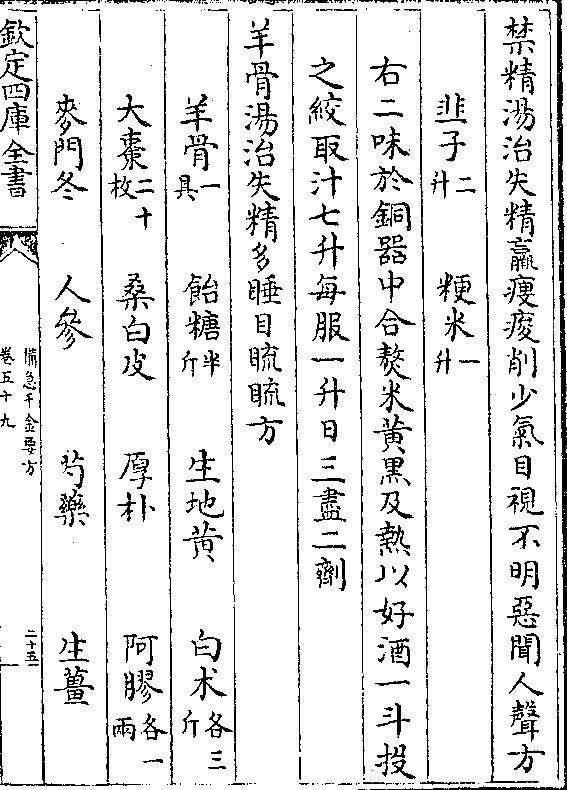 禁精湯治失精羸瘦痠削少氣目視不明惡聞人聲方
韭子二升　粳米一升
右二味於銅器中合熬米黃黒及熱以好酒一斗投
之絞取汁七升每服一升日三盡二劑
羊骨湯治失精多睡目䀮䀮方
羊骨一具　飴糖半斤　生地黄　白术各三斤
大棗二十枚　桑白皮　厚朴　阿膠各一兩
麥門冬　人參　芍藥　生薑
欽定四庫全書
備急千金要方
卷五十九
二十五